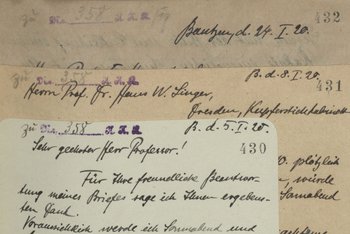 zu Nr. 358 A.K.K. 432
Bautzen, d. 24. I. 20.
zu Nr. 358 A.K.K. B. d. 8. I. 20.
Herrn Prof. Dr. Hans W. Singer, 431
Dresden, Kupferstichkabinett
zu Nr. 358 A.K.K. B. d. 5. I. 20.
Sehr geehrter Herr Professor! 430
plötzlich
Für Ihre freundliche Beantwor- würde
tung meines Briefes sage ich Ihnen ergeben- Sonnabend
sten Dank.
Voraussichtlich werde ich Sonnabend und